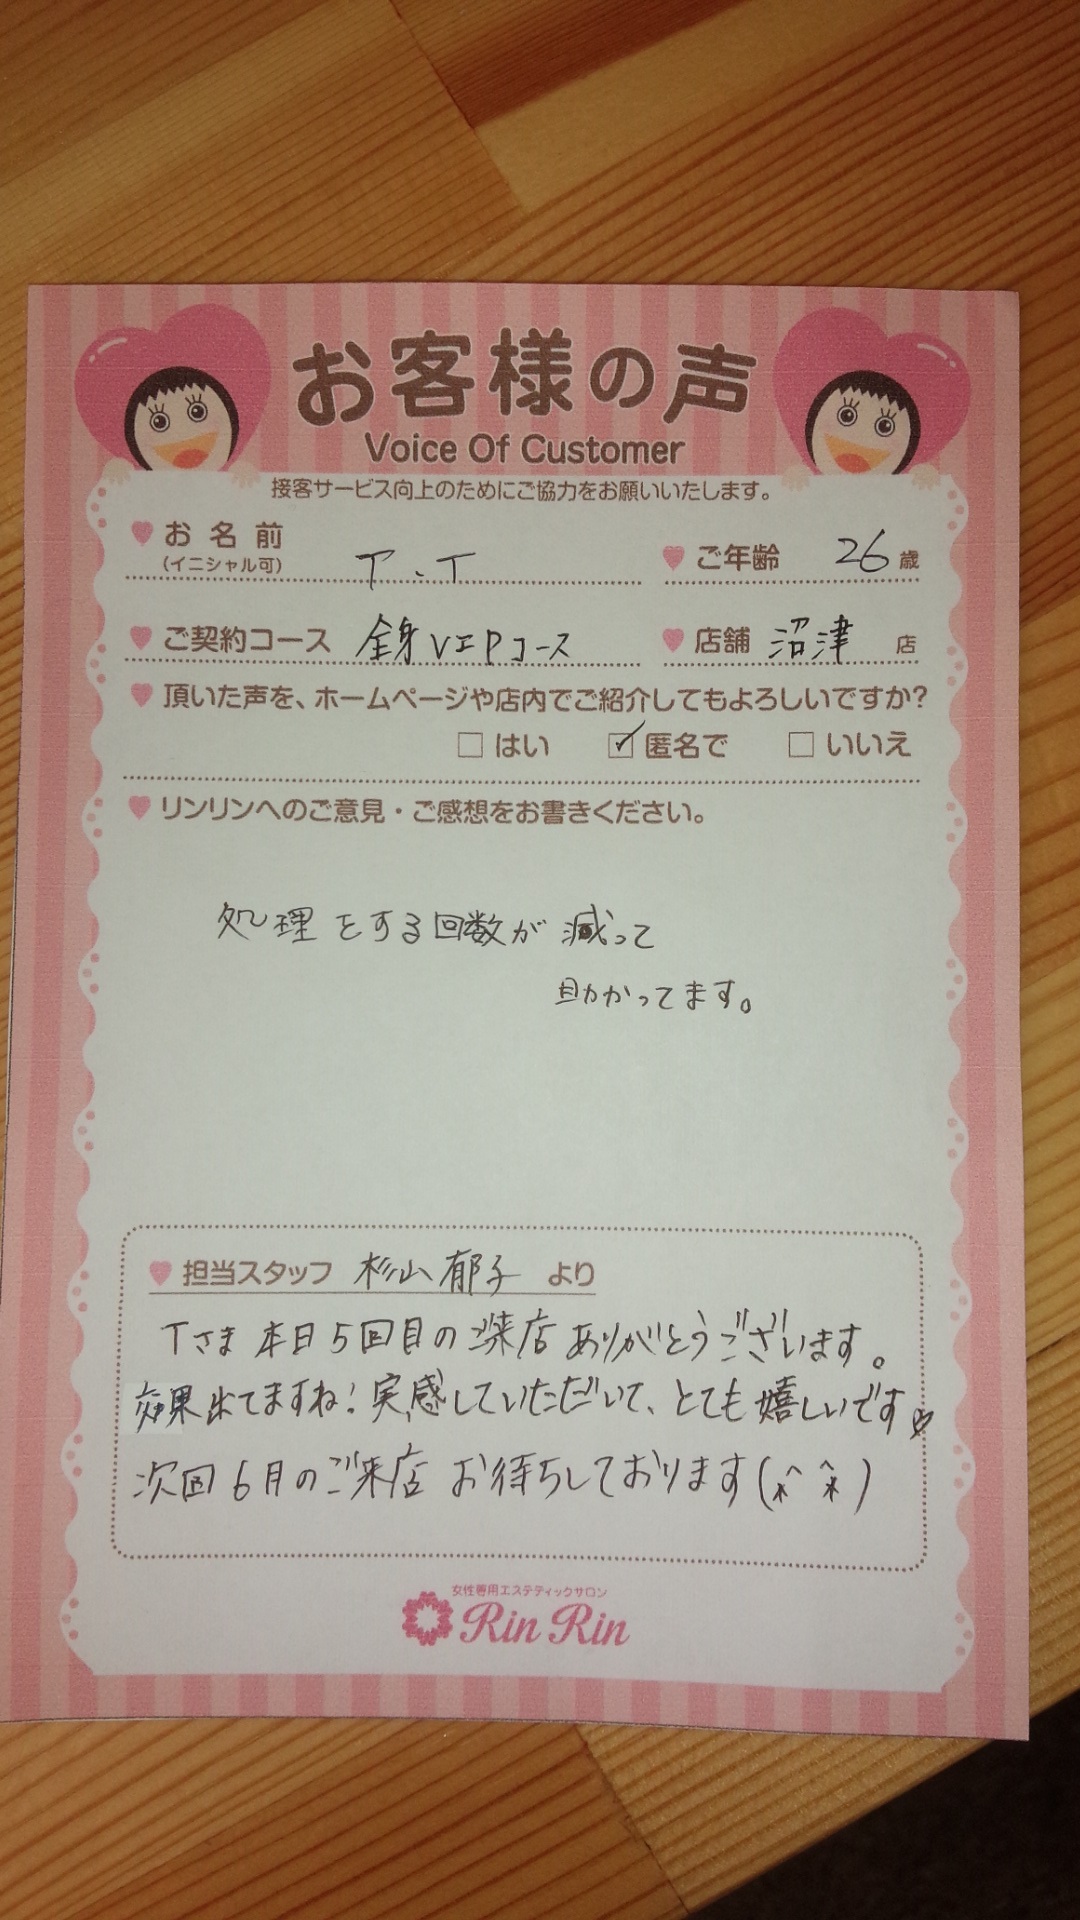 お客様の声
Voice Of Customer
接客サービス向上のためにご協力をお願いいたします。
お名前 T.T ご年齢 26 歳
(イニシャル可)
ご契約コース 全身VIPコース 店舗 沼津 店
頂いた声を、ホームページや店内でご紹介してもよろしいですか?
□ はい ☑ 匿名で □ いいえ
リンリンへのご意見・ご感想をお書きください。
処理をする回数が減って
助かってます。
担当スタッフ 杉山 郁子 より
Tさま 本日5回目のご来店ありがとうございます。
効果出てますね!実感していただいて、とても嬉しいです♡
次回6月のご来店お待ちしております(*^ ^*)
女性専用エステティックサロン
Rin Rin